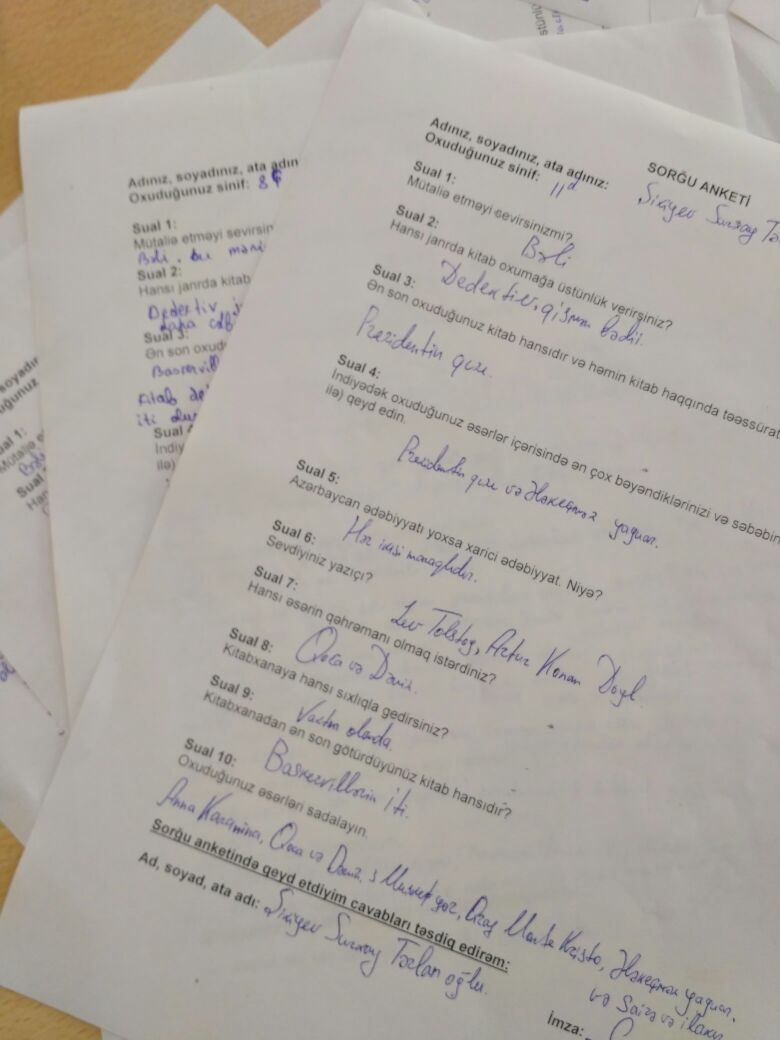 SORĞU ANKETİ
Adınız, soyadınız, ata adınız:
Oxuduğunuz sinif: 11ᵈ
Sual 1:
Mütaliə etməyi sevirsinizmi?
Bəli
Sual 2:
Hansı janrda kitab oxumağa üstünlük verirsiniz?
Dedektiv, qismən bədii.
Sual 3:
Ən son oxuduğunuz kitab hansıdır və həmin kitab haqqında təəssürat
Prezidentin qızı.
Sual 4:
İndiyədək oxuduğunuz əsərlər içərisində ən çox bəyəndiklərinizi və səbəbin
ilə) qeyd edin.
Prezidentin qızı və yaquar.
Sual 5:
Azərbaycan ədəbiyyatı yoxsa xarici ədəbiyyat. Niyə?
Hər ikisi maraqlıdır.
Sual 6:
Sevdiyiniz yazıçı?
Lev Tolstoy, Artur Konan Doyl.
Sual 7:
Hansı əsərin qəhrəmanı olmaq istərdiniz?
Qoca və Dəniz.
Sual 8:
Kitabxanaya hansı sıxlıqla gedirsiniz?
Vaxtım olanda.
Sual 9:
Kitabxanadan ən son götürdüyünüz kitab hansıdır?
Baskervillərin iti.
Sual 10:
Oxuduğunuz əsərləri sadalayın.
Anna Karanina, Qoca və Dəniz, 3 Muşketyor, Qraf Monte Kristo, yaquar,
və
Sorğu anketində qeyd etdiyim cavabları təsdiq edirəm:
Ad, soyad, ata adı: Tərlan oğlu.
İmza:
Adınız, soyadınız, ata adın
Oxuduğunuz sinif: 8
Sual 1:
Mütaliə etməyi sevirsin
Bəli, bu məni
Sual 2:
Hansı janrda kitab
Dedektiv,
daha
Sual 3:
Ən son oxud
Baskervill
Kitab
iti
Sual 4
İndiy
ilə)